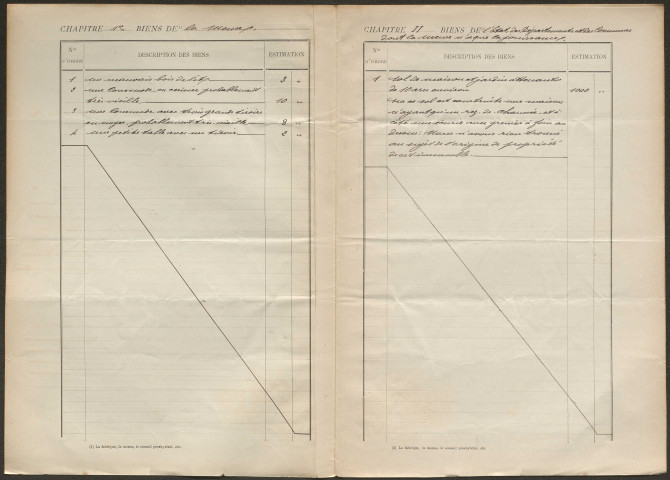 CHAPITRE 1er BIENS DE (1) la Mense
N°
D'ORDRE
DESCRIPTION DES BIENS
ESTIMATION
1 un mauvais bois de lit 3 "
2 une Commode en cerisier probablement
très vieille 10 "
3 une Commode avec trois grands tiroirs
en noyer probablement très vieille 8 "
4 une petite table avec un tiroir 2 "
(1) La fabrique, la mense, le conseil presbytéral, etc.
CHAPITRE II BIENS DE l'Etat, des Départements et des Communes
dont la Mense n'a que la jouissance
N°
D'ORDRE
DESCRIPTION DES BIENS
ESTIMATION
1 Sol de maison et jardin
de 1000 "
sur ce sol est construite une maison
n'ayant qu'un rez de chaussée et à
côté une écurie avec grenier à foin au
dessus. Nous n'avons rien trouvé
au sujet de l'origine de propriété
de cet immeuble
(1) La fabrique, la mense, le conseil presbytéral, etc.